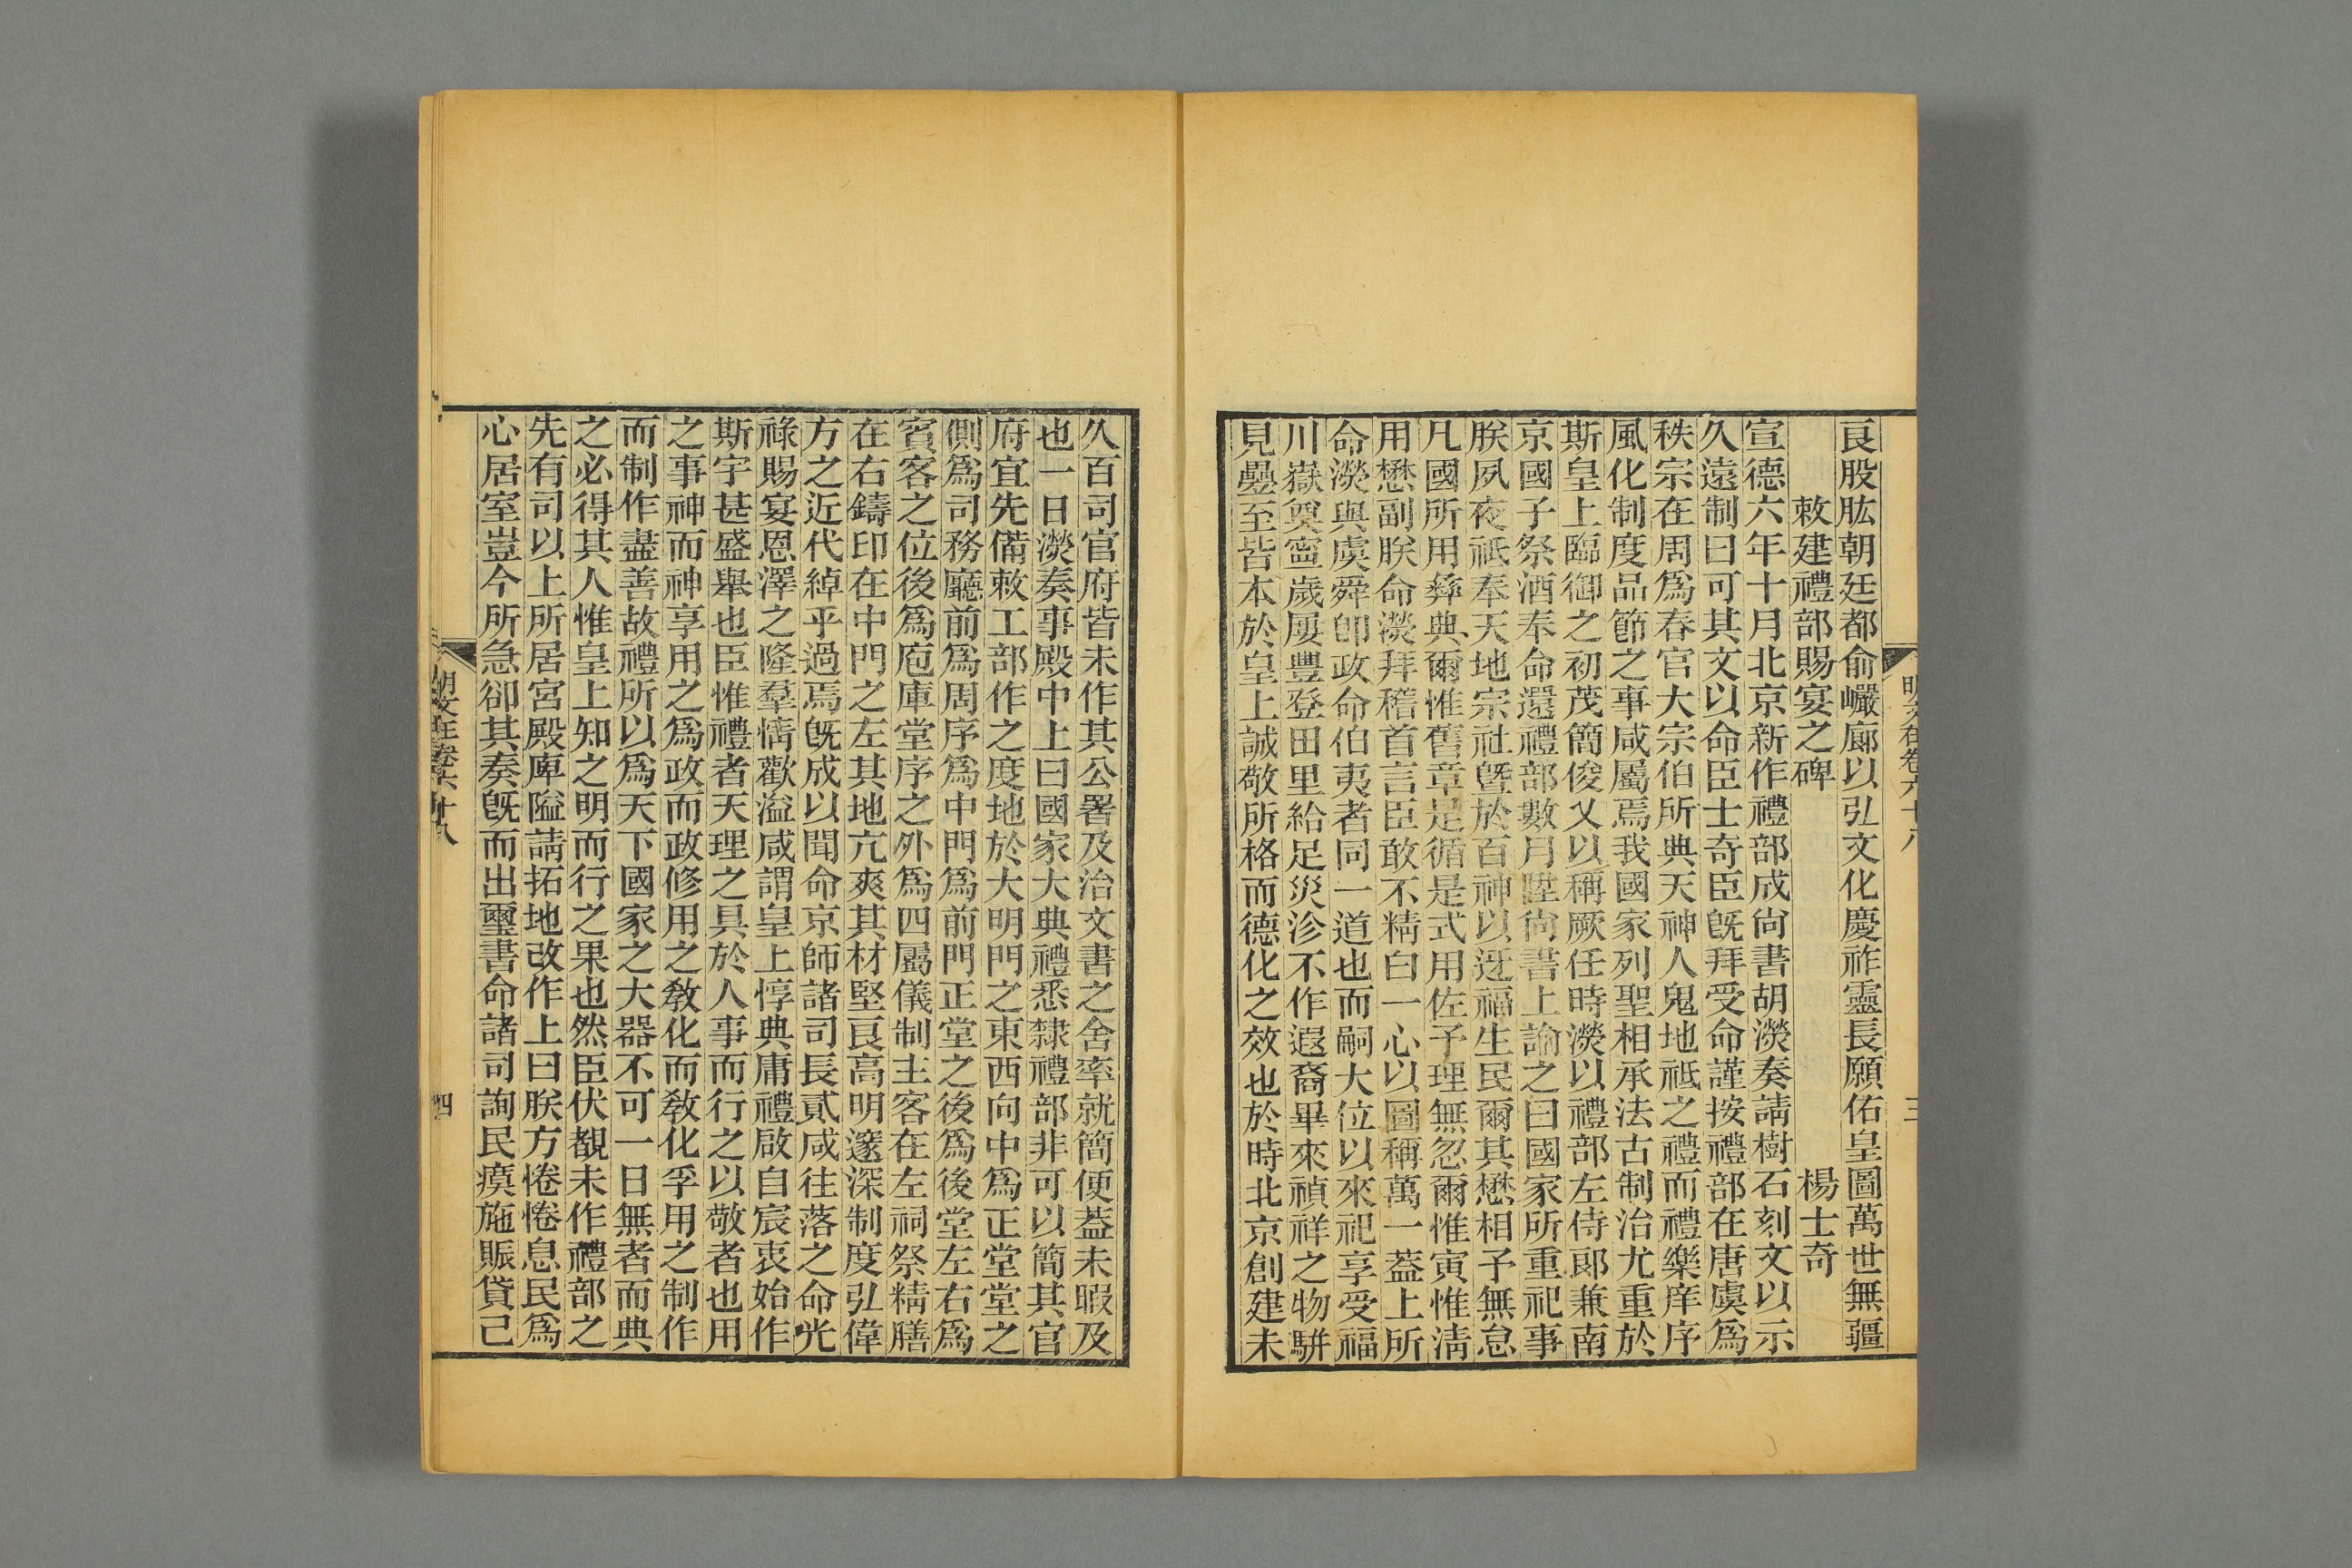 明文在卷六十八
三
良股肱朝廷都俞巖廊以弘文化慶祚靈長願佑皇圖萬世無疆
敕建禮部賜宴之碑 楊士奇
宣德六年十月北京新作禮部成尚書胡濙奏請樹石刻文以示
久遠制曰可其文以命臣士奇臣旣拜受命謹按禮部在唐虞爲
秩宗在周爲春官大宗伯所典天神人鬼地祇之禮而禮樂庠序
風化制度品節之事咸屬焉我國家列聖相承法古制治尤重於
斯皇上臨御之初茂簡俊乂以稱厥任時濙以禮部左侍郎兼南
京國子祭酒奉命還禮部數月陞尚書上諭之曰國家所重祀事
朕夙夜祗奉天地宗社曁於百神以迓福生民爾其懋相予無怠
凡國所用彝典爾惟舊章是循是式用佐予理無忽爾惟寅惟淸
用懋副朕命濙拜稽首言臣敢不精白一心以圖稱萬一葢上所
命濙與虞舜卽政命伯夷者同一道也而嗣大位以來祀享受福
川嶽奠寧歲屢豐登田里給足災沴不作遐裔畢來禎祥之物駢
見疊至皆本於皇上誠敬所格而德化之效也於時北京創建未
久百司官府皆未作其公署及治文書之舍率就簡便葢未暇及
也一日濙奏事殿中上曰國家大典禮悉隸禮部非可以簡其官
府宜先備敕工部作之度地於大明門之東西向中爲正堂堂之
側爲司務廳前爲周序爲中門爲前門正堂之後爲後堂左右爲
賓客之位後爲庖庫堂序之外爲四屬儀制主客在左祠祭精膳
在右鑄印在中門之左其地亢爽其材堅良高明邃深制度弘偉
方之近代綽乎過焉旣成以聞命京師諸司長貳咸往落之命光
祿賜宴恩澤之隆羣情歡溢咸謂皇上惇典庸禮啟自宸衷始作
斯宇甚盛舉也臣惟禮者天理之具於人事而行之以敬者也用
之事神而神享用之爲政而政修用之敎化而敎化孚用之制作
而制作盡善故禮所以爲天下國家之大器不可一日無者而典
之必得其人惟皇上知之明而行之果也然臣伏覩未作禮部之
先有司以上所居宮殿庳隘請拓地改作上曰朕方惓惓息民爲
心居室豈今所急卻其奏旣而出璽書命諸司詢民瘼施賑貸己
明文在卷六十八
四